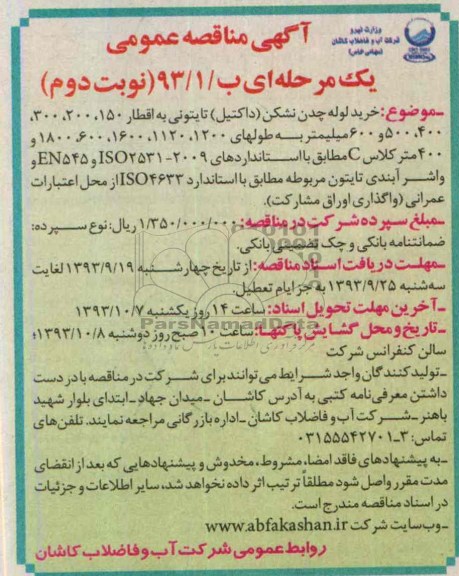 وزارت نیرو
شرکت آب و فاضلاب کاشان
(سهامی خاص)
آگهی مناقصه عمومی
یک مرحله‌ای ب/۹۳/۱ (نوبت دوم)
ـ موضوع: خرید لوله چدن نشکن (داکتیل) تایتونی به اقطار ۱۵۰، ۲۰۰، ۳۰۰،
۴۰۰، ۵۰۰ و ۶۰۰ میلیمتر به طولهای ۱۲۰۰، ۱۱۲۰، ۱۶۰۰، ۶۰۰، ۱۸۰۰ و
۴۰۰ متر کلاس C مطابق با استانداردهای ISO۲۵۳۱-۲۰۰۹ و EN۵۴۵ و
واشر آبندی تایتون مربوطه مطابق با استاندارد ISO۴۶۳۳ از محل اعتبارات
عمرانی (واگذاری اوراق مشارکت).
ـ مبلغ سپرده شرکت در مناقصه: ۱/۳۵۰/۰۰۰/۰۰۰ ریال: نوع سپرده:
ضمانتنامه بانکی و چک تضمینی بانکی.
ـ مهلت دریافت اسناد مناقصه: از تاریخ چهارشنبه ۱۳۹۳/۹/۱۹ لغایت
سه‌شنبه ۱۳۹۳/۹/۲۵ به جز ایام تعطیل.
ـ آخرین مهلت تحویل اسناد: ساعت ۱۴ روز یکشنبه ۱۳۹۳/۱۰/۷
ParsNamadData
ـ تاریخ و محل گشایش پاکتها: ساعت ۱۰ صبح روز دوشنبه ۱۳۹۳/۱۰/۸؛
سالن کنفرانس شرکت
ـ تولیدکنندگان واجد شرایط می‌توانند برای شرکت در مناقصه با در دست
داشتن معرفی‌نامه کتبی به آدرس کاشان ـ میدان جهاد ـ ابتدای بلوار شهید
باهنر ـ شرکت آب و فاضلاب کاشان ـ اداره بازرگانی مراجعه نمایند. تلفن‌های
تماس: ۳-۰۳۱۵۵۵۴۲۷۰۱
ـ به پیشنهادهای فاقد امضاء، مشروط، مخدوش و پیشنهادهایی که بعد از انقضای
مدت مقرر واصل شود مطلقاً ترتیب اثر داده نخواهد شد، سایر اطلاعات و جزئیات
در اسناد مناقصه مندرج است.
ـ وب سایت شرکت www.abfakashan.ir
روابط عمومی شرکت آب و فاضلاب کاشان